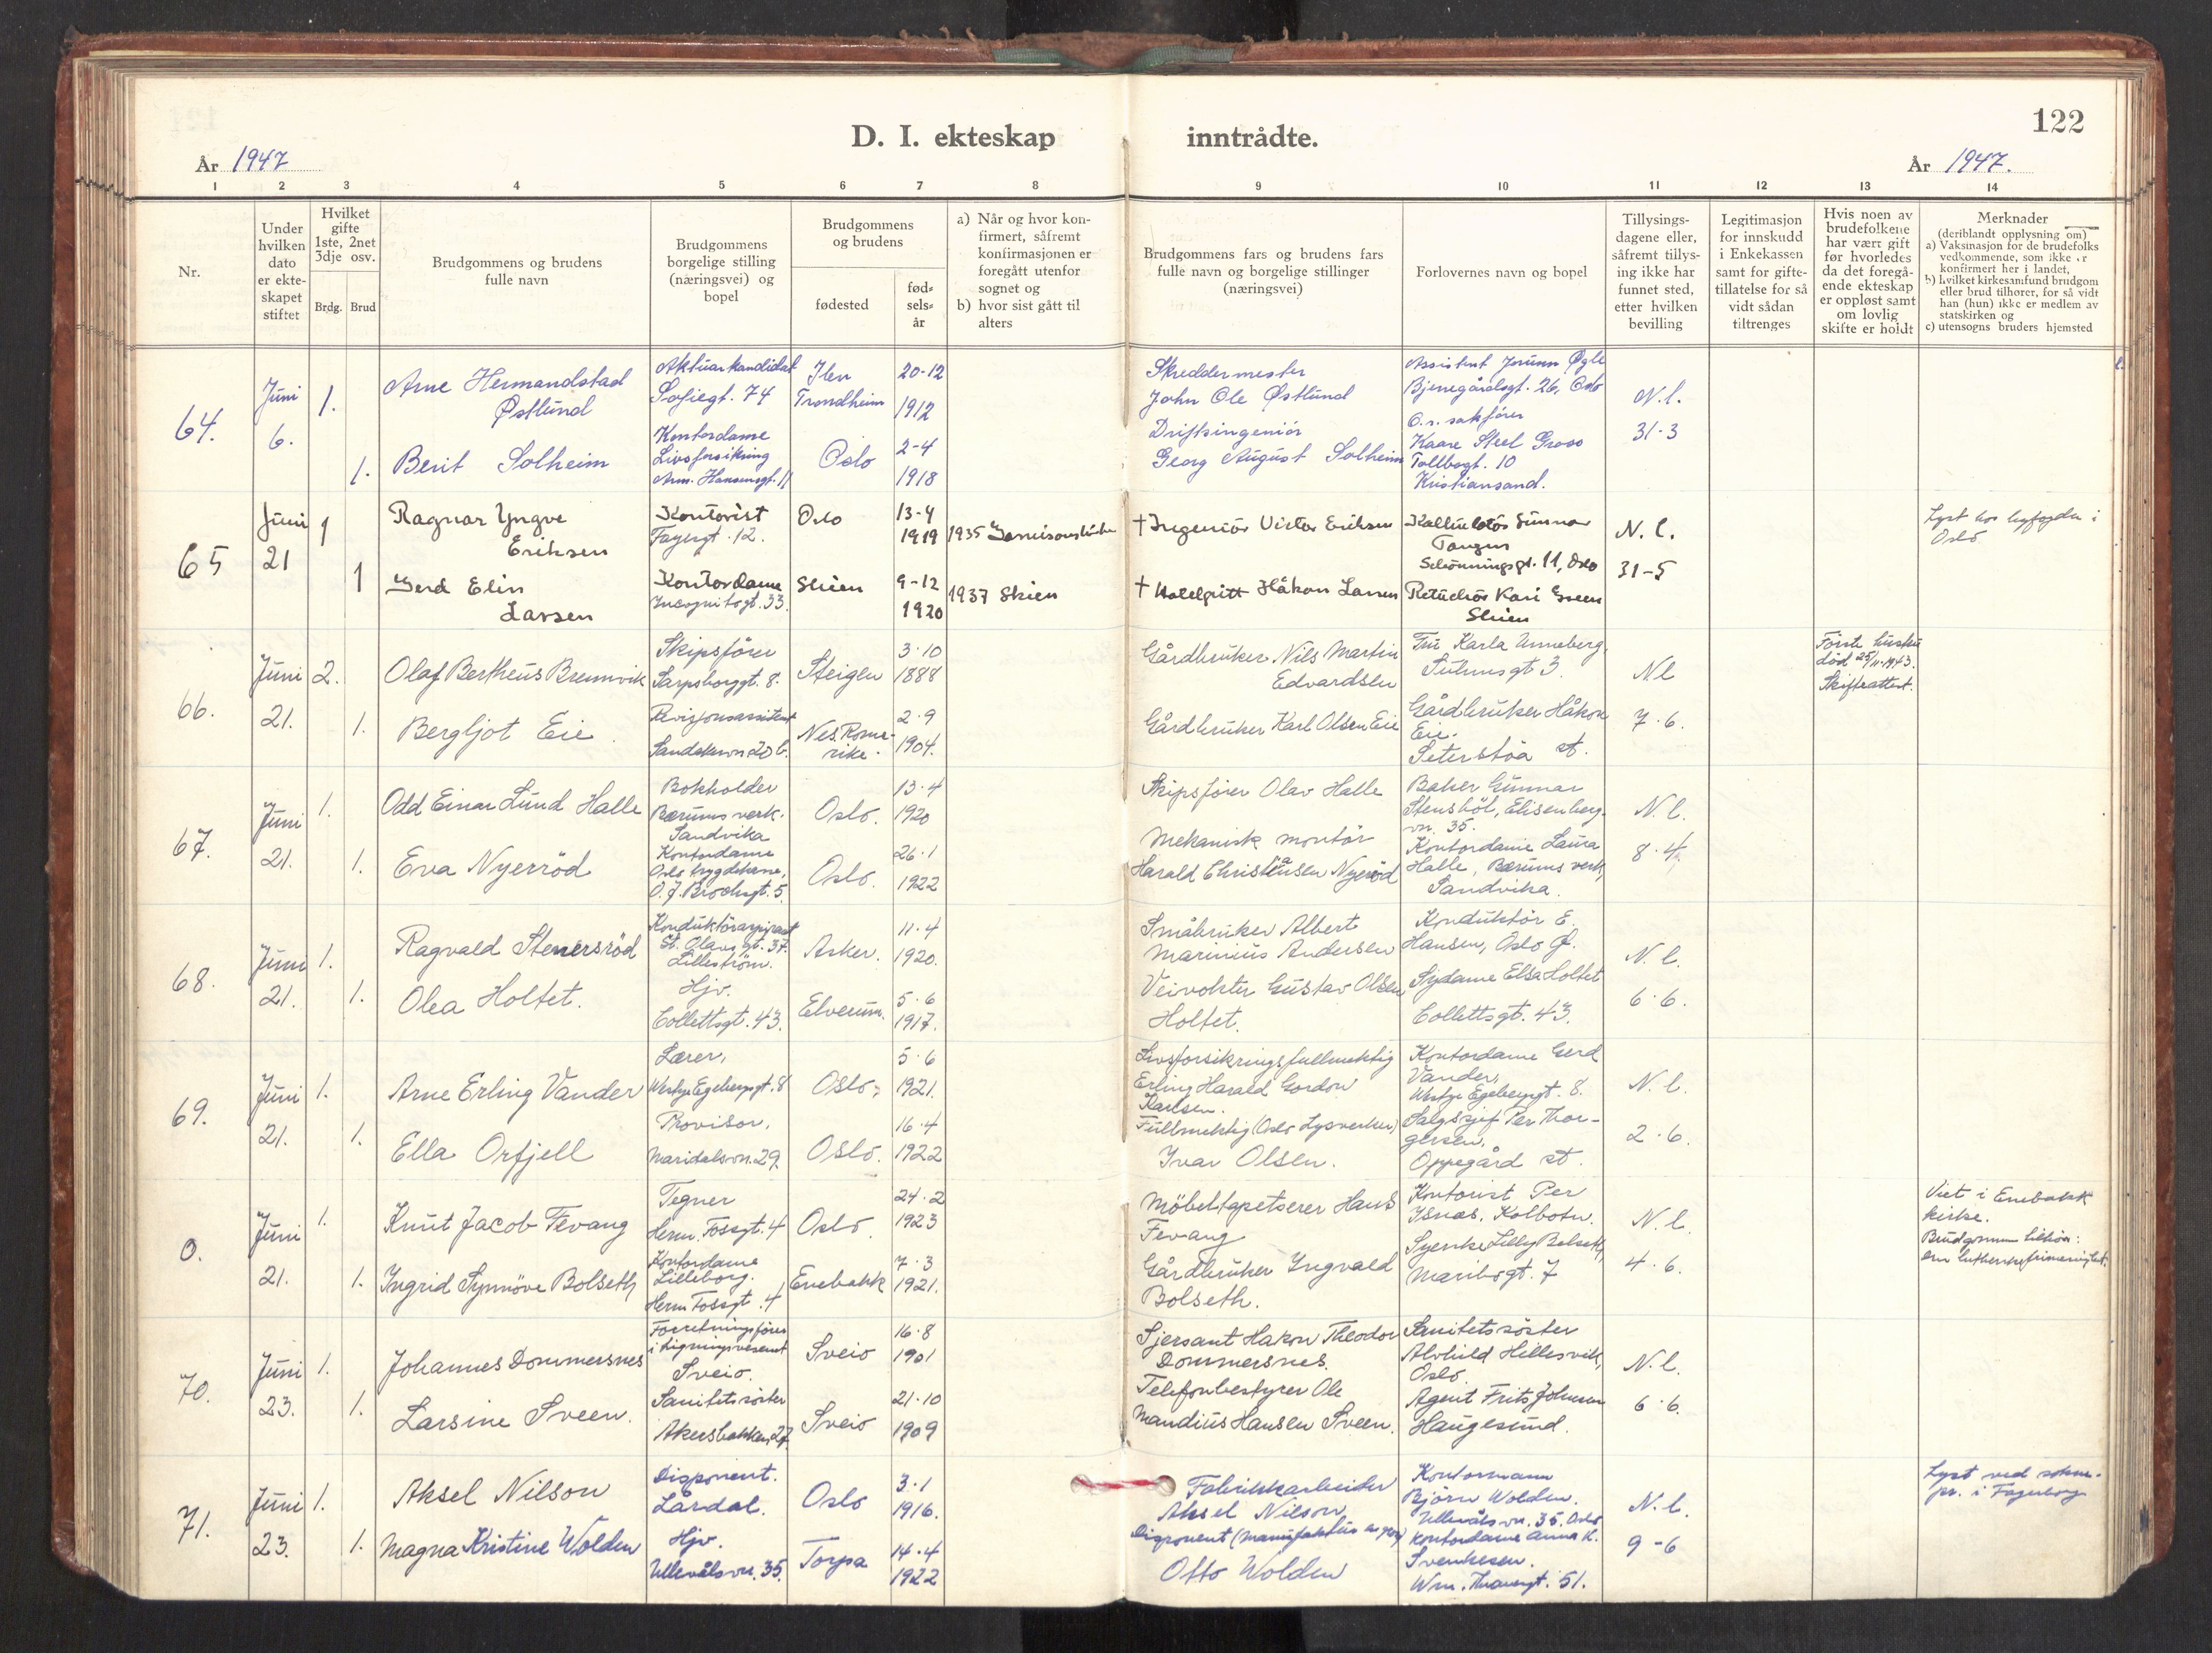 122
D. I. ekteskap inntrådte.
År 1947
År 1947.
1 2 3 4 5 6 7 8 9 10 11 12 13 14
Nr.
Under
hvilken
dato
er ekte-
skapet
stiftet
Hvilket
gifte
1ste, 2net
3dje osv.
Brdg. Brud
Brudgommens og brudens
fulle navn
Brudgommens
borgelige stilling
(næringsvei) og
bopel
Brudgommens
og brudens
fødested
fød-
sels-
år
a) Når og hvor kon-
firmert, såfremt
konfirmasjonen er
foregått utenfor
sognet og
b) hvor sist gått til
alters
Brudgommens fars og brudens fars
fulle navn og borgelige stillinger
(næringsvei)
Forlovernes navn og bopel
Tillysings-
dagene eller,
såfremt tillys-
ing ikke har
funnet sted,
etter hvilken
bevilling
Legitimasjon
for innskudd
i Enkekassen
samt for gifte-
tillatelse for så
vidt sådan
tiltrenges
Hvis noen av
brudefolkene
har vært gift
før hvorledes
da det foregå-
ende ekteskap
er oppløst samt
om lovlig
skifte er holdt
Merknader
(deriblandt opplysning om)
a) Vaksinasjon for de brudefolks
vedkommende, som ikke er
konfirmert her i landet,
b) hvilket kirkesamfund brudgom
eller brud tilhører, for så vidt
han (hun) ikke er medlem av
statskirken og
c) utensogns bruders hjemsted
64.
Juni
6.
1.
Arne Hermandstad
Østlund
Aktuarkandidat
Sofiegt. 74
Ilen
Trondheim
20-12
1912
Skreddermester
John Ole Østlund
Assistent Jorunn Øgle
Bjerregårdsgt. 26, Oslo
N.l.
31-3
1.
Berit Solheim
Kontordame
Livsforsikring
Arm. Hansensgt. 11
Oslo
2-4
1918
Driftsingeniör
Georg August Solheim
O.r. sakförer
Kaare Steel Groos
Tollbogt. 10
Kristiansand.
65
Juni
21
1
Ragnar Yngve
Eriksen
Kontorist
Fagergt. 12.
Oslo
13-4
1919
1935
† Ingeniör Victor Eriksen
Gunnar
Tangen
Schönningsgt. 11, Oslo
N. l.
31-5
Lyst hos byfogden i
Oslo
1
Gerd Elin
Larsen
Kontordame
Incognitogt. 33.
Skien
9-12
1920
1937 Skien
† Håkon Larsen
Kari
Skien
66.
Juni
21.
2.
Olaf Bertheus Brennvik
Skipsförer
Sarpsborggt. 8.
Steigen
3.10
1888
Gårdbruker Nils Martin
Edvardsen
Fru Karla Anneberg,
3.
N.l
7.6.
Förste hustru
död 25/11-1943.
Skifteattest.
1.
Bergljot Eie.
Revisjonsassistent
Sandakervn. 20 b.
Nes Rome-
rike.
2.9
1904.
Gårdbruker Karl Olsen Eie
Gårdbruker Håkon
Eie.
Seterstöa st.
67.
Juni
21.
1.
Odd Einar Lund Halle
Bokholder
Bærums verk.
Sandvika
Oslo.
13.4
1920
Skipsförer Olav Halle
Baker Gunnar
Stensböl, Elisenberg-
vn. 35.
N. l.
8.4.
1.
Eva Nyerröd
Kontordame
Oslo trygdekasse,
O. J. Brochsgt. 5.
Oslo.
26.1
1922
Mekanisk montör
Harald Christiansen Nyeröd
Kontordame Laura
Halle, Bærums verk,
Sandvika.
68.
Juni
21.
1.
Ragvald Stenersröd
Konduktöraspirant
St. Olavs gt. 37.
Lilleström.
Asker.
11.4
1920.
Småbruker Albert
Marinius Andersen
Konduktör E.
Hansen, Oslo Ø.
N. l.
6.6.
1.
Olea Holtet.
Hjv.
Collettsgt. 43.
Elverum.
5.6
1917.
Veivokter Gustav Olsen
Holtet.
Sydame Elsa Holtet
Collettsgt. 43.
69.
Juni
21.
1.
Arne Erling Vander
Lærer,
Westye Egebergsgt. 8
Oslo.
5.6
1921.
Livsforsikringsfullmektig
Erling Harald Gordon
Karlsen.
Kontordame Gerd
Vander,
Westye Egebergsgt. 8.
N. l.
2.6.
1.
Ella Orfjell
Provisor,
Maridalsvn. 29.
Oslo.
16.4
1922
Fullmektig (Oslo Lysverker)
Ivar Olsen.
Salgssjef Per Thor-
gersen,
Oppegård st.
0.
Juni
21.
1.
Knut Jacob Fevang
Tegner
Herm. Fossgt. 4
Oslo.
24.2
1923
Möbeltapetserer Hans
Fevang
Kontorist Per
Isnæs, Kolbotn.
N. l.
4.6.
Viet i Enebakk
kirke.
Brudgommen tilhörer:
Den lutherske frimenighet.
1.
Ingrid Synnöve Bolseth
Kontordame
Lilleborg.
Herm. Fossgt. 4
Enebakk
7.3
1921.
Gårdbruker Ingvald
Bolseth.
Syerske Lilly Bolseth,
Maribogt. 7
70.
Juni
23.
1.
Johannes Dommersnes
Forretningsförer
i Ligningsvesenet
Sveio.
Sveio
16.8
1901
Sjersant Hakon Theodor
Dommersnes.
Sanitetssöster
Alvhild Hillesvik,
Oslo.
N. l.
6.6.
1.
Larsine Sveen.
Sanitetssöster
Akersbakken 27.
Sveio
21.10
1909
Telefonbestyrer Ole
Mandius Hansen Sveen.
Agent Frits Johnsen
Haugesund.
71.
Juni
23.
1.
Aksel Nilson
Disponent.
Lårdal.
Oslo
3.1
1916.
Fabrikkarbeider
Aksel Nilson
Kontormann
Björn Wolden.
Ullevålsvn. 35. Oslo
N. l.
9-6
Lyst ved sokne-
pr. i Fagerborg
1.
Magna Kristine Wolden
Hjv.
Ullevålsvn. 35.
Torpa
14.4
1922
Disponent
Otto Wolden
Kontordame Anna K.
Svenkesen.
Wm. Thranesgt. 51.